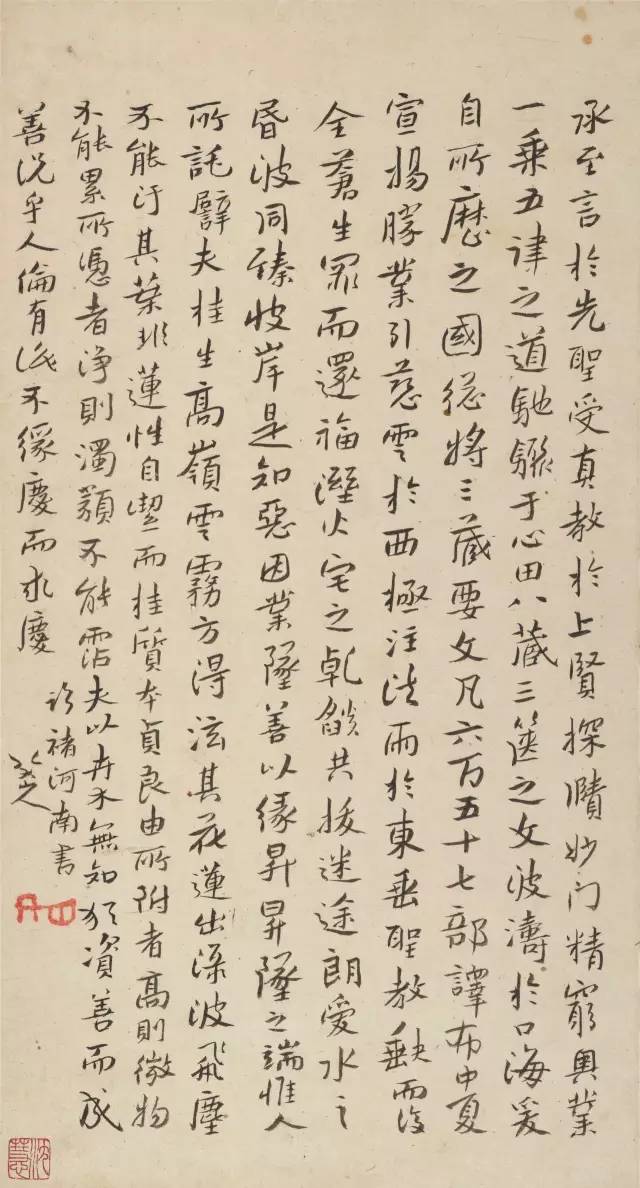 承至言於先聖受真教於上賢探賾妙门精窮奧業
一乘五律之道馳驟于心田八藏三篋之文波濤於口海爰
自所歷之國總將三藏要文凡六百五十七部譯布中夏
宣揚勝業引慈雲於西極注法雨於東垂聖教缺而復
全蒼生罪而還福溼火宅之乾燄共拔迷途朗愛水之
昏波同臻彼岸是知惡因業墜善以緣昇昇墜之端惟人
所託譬夫桂生高嶺雲霧方得泫其花蓮出渌波飛塵
不能汙其葉非蓮性自潔而桂質本貞良由所附者高則微物
不能累所憑者淨則濁類不能霑夫以卉木無知猶資善而成
善況乎人倫有識不緣慶而求慶
臨褚河南書
八大山人